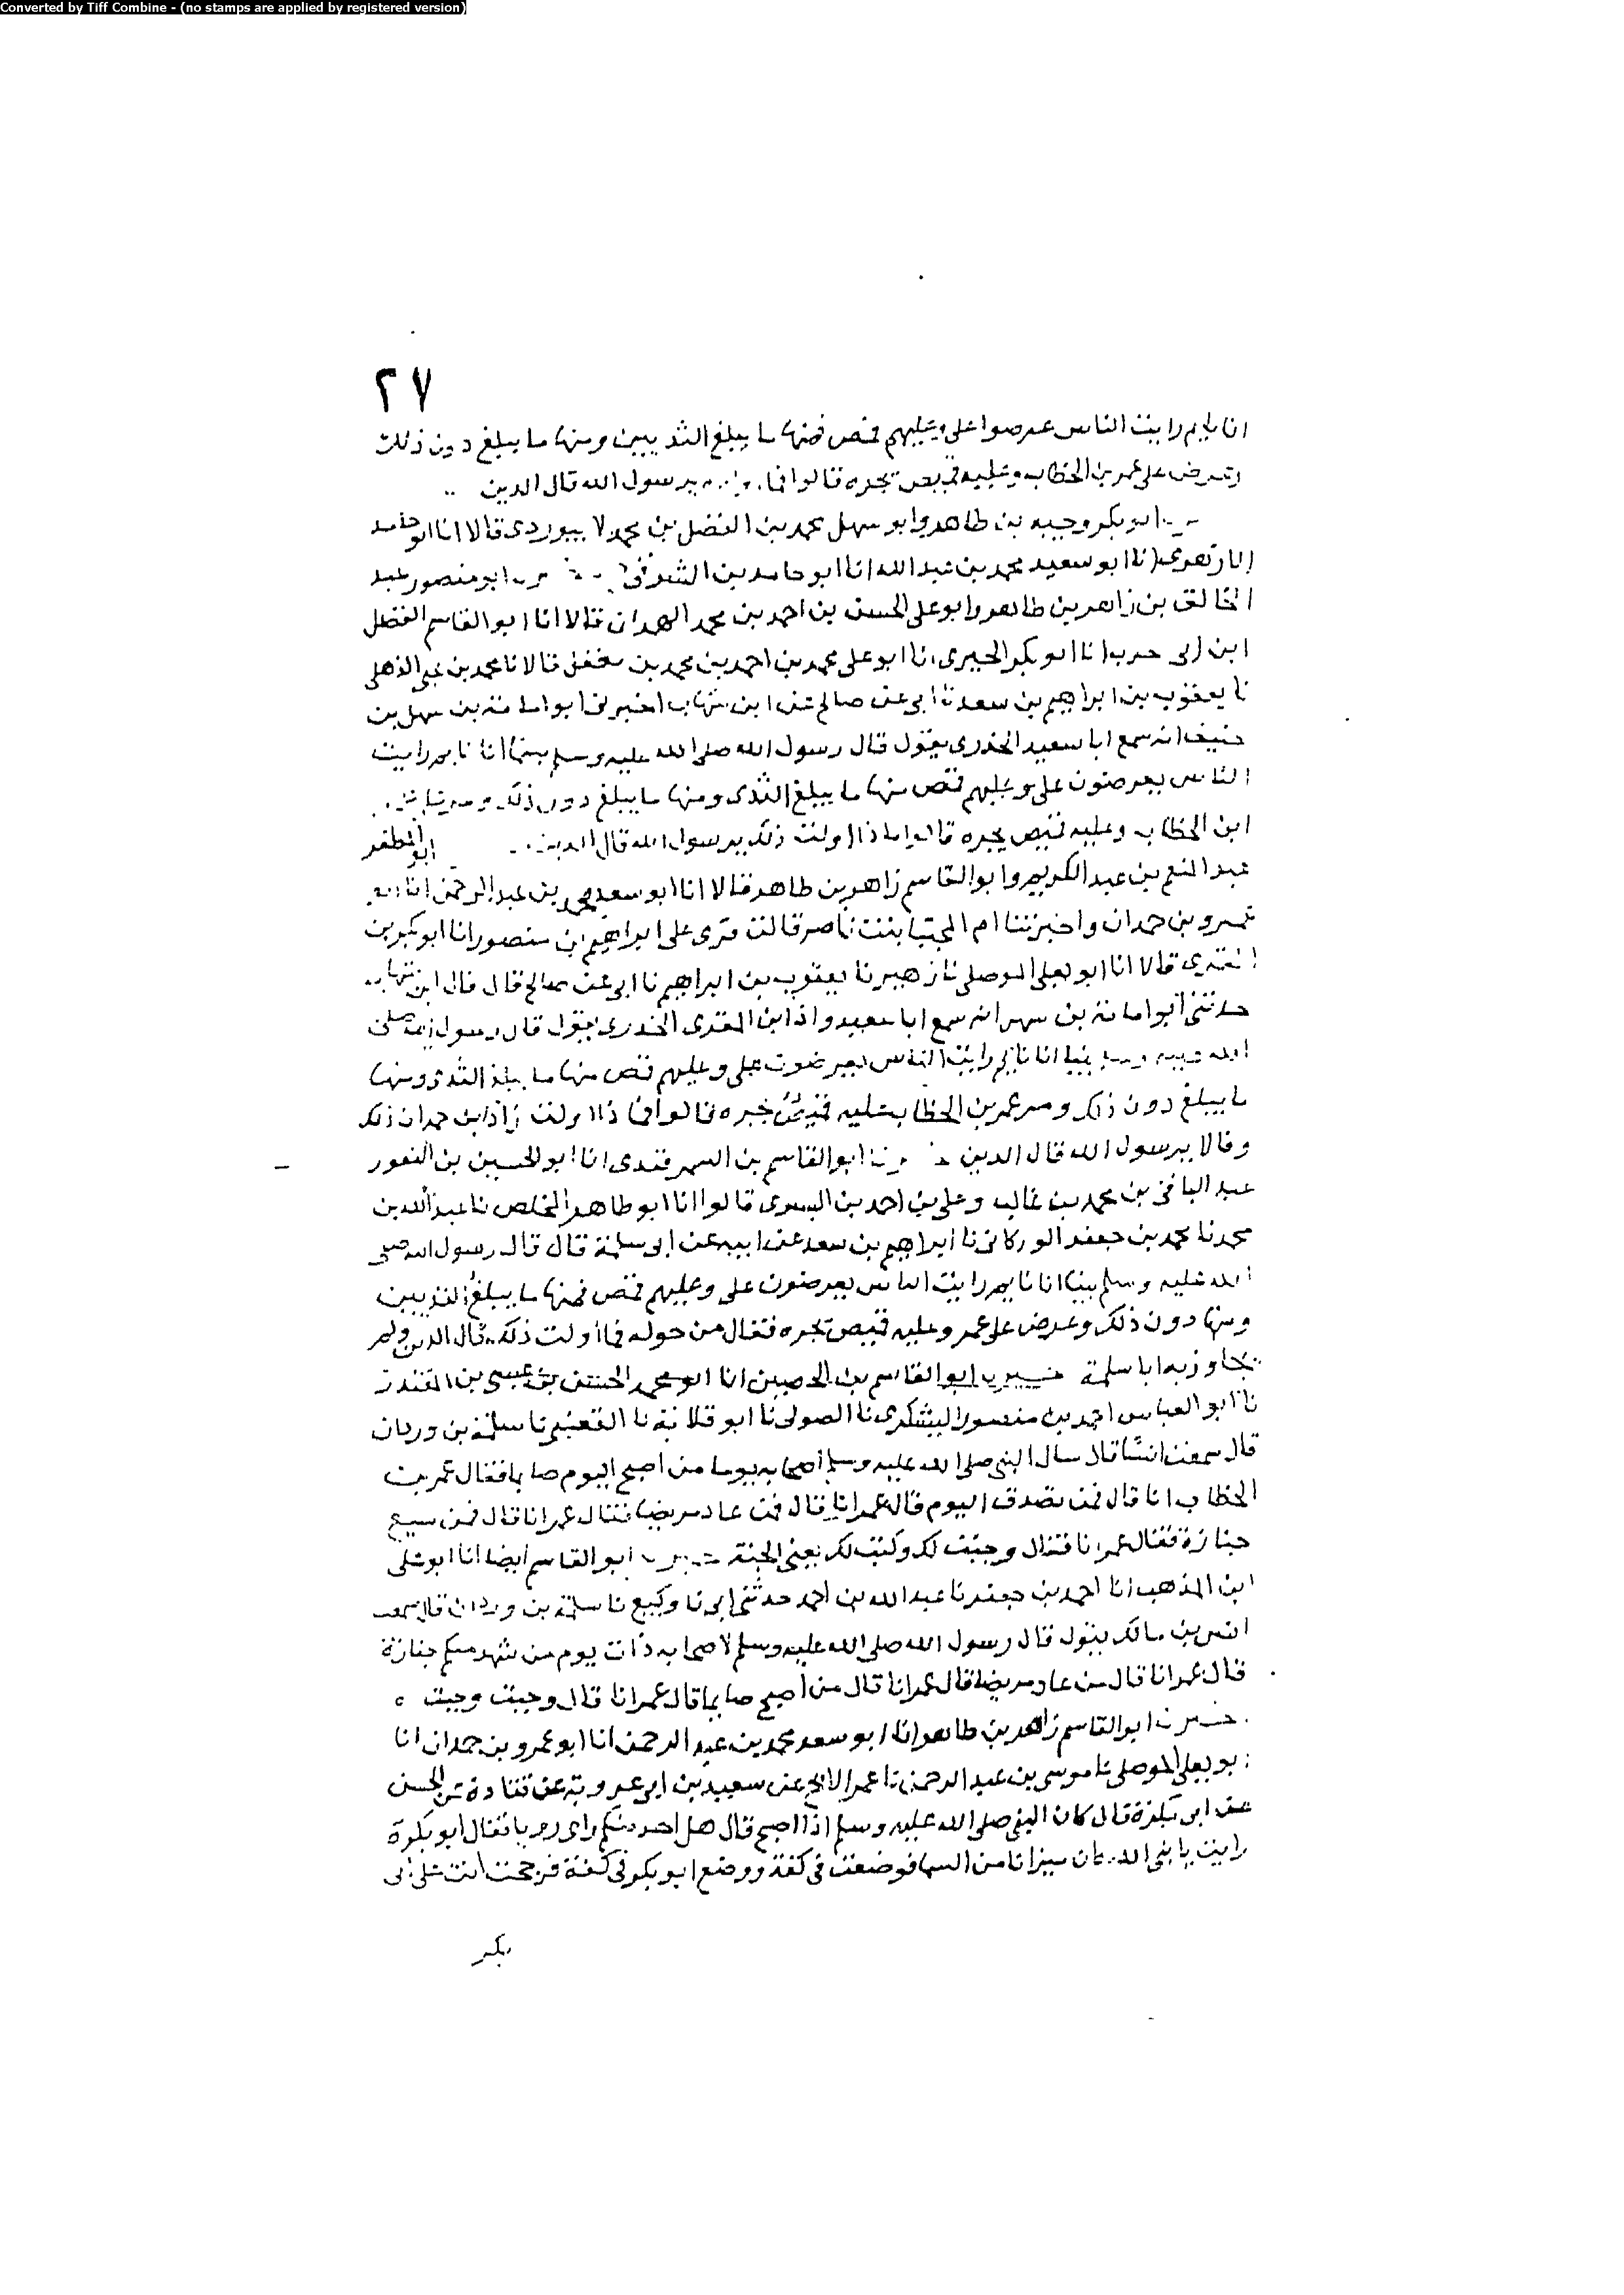 Converted by Tiff Combine - (no stamps are applied by registered version)
٢٧
انا نايم رايت الناس عرضوا علي وعليهم قمص فمنها ما يبلغ الثديين ومنها ما يبلغ دون ذلك
وعرض علي عمر بن الخطاب وعليه قميص يجره قالوا فما يرسول الله قال الدين
ابو بكر وجيه بن طاهر وابو سهل محمد بن الفضل بن محمد لا بيوردي قالا انا ابو حامد
الازهري انا ابو سعيد محمد بن عبد الله انا ابو حامد بن الشرقي ابو منصور عبد
الخالق بن زاهر بن طاهر وابو علي الحسن بن احمد بن محمد قالا انا ابو القاسم الفضل
ابن ابي حرب انا ابو بكر الحيري انا ابو علي محمد بن احمد بن محمد بن معقل قالا نا محمد بن يحيى الذهلي
نا يعقوب بن ابراهيم بن سعد نا ابي عن صالح عن ابن شهاب اخبرني ابو امامة بن سهل بن
حنيف انه سمع ابا سعيد الخدري يقول قال رسول الله صلى الله عليه وسلم بينما انا نايم رايت
الناس يعرضون علي وعليهم قمص منها ما يبلغ الثدى ومنها ما يبلغ دون ذلك
ابن الخطاب وعليه قميص يجره قالوا ماذا اولت ذلك يرسول الله قال الدين ابو المظفر
عبد المنعم بن عبد الكريم وابو القاسم زاهر بن طاهر قالا انا ابو سعيد محمد بن عبد الرحمن انا
عمرو بن حمدان واخبرتنا ام المجتبا بنت ناصر قالت قرى علي ابراهيم بن منصور انا ابو بكر بن
المقري قالا انا ابو يعلى الموصلي نا زهير نا يعقوب بن ابراهيم نا ابي عن صالح قال قال ابن شهاب
حدثني ابو امامة بن سهل انه سمع ابا سعيد زاد ابن المقرى الخدري يقول قال رسول الله صلى
الله عليه وسلم بينا انا نايم رايت الناس يعرضون علي وعليهم قمص منها ما يبلغ الثدى ومنها
ما يبلغ دون ذلك ومر عمر بن الخطاب عليه قميص يجره قالوا فماذا اولت زاد ابن حمدان ذلك
وقالا يرسول الله قال الدين ابو القاسم بن السمرقندى انا ابو الحسين بن النقور
عبد الباقي بن محمد بن غالب وعلي بن احمد بن البسرى قالوا انا ابو طاهر المخلص نا عبد الله بن
محمد نا محمد بن جعفر الوركاني نا ابراهيم بن سعد عن ابيه عن ابي سلمة قال قال رسول الله صلى
الله عليه وسلم بينا انا نايم رايت الناس يعرضون علي وعليهم قمص فمنها ما يبلغ الثديين
ومنها دون ذلك وعرض علي عمر وعليه قميص يجره فقال من حوله فما اولت ذلك قال الدين ولم
يجاوز به ابا سلمة ابو القاسم بن الحصين انا ابو محمد الحسن بن عيسى بن المقتدر
نا ابو العباس احمد بن منصور اليشكري نا الصولي نا ابو قلابة نا القعنبي نا سلمة بن وردان
قال سمعت انسا قال سال النبي صلى الله عليه وسلم اصحابه يوما من اصبح اليوم صايما فقال عمر بن
الخطاب انا قال فمن تصدق اليوم قال عمر انا قال فمن عاد مريضا فقال عمر انا قال فمن سيع
جنازة فقال عمر انا فقال وجبت لك وكتبت لك يعني الجنة ابو القاسم ايضا انا ابو علي
ابن المذهب انا احمد بن جعفر نا عبد الله بن احمد حدثني ابي نا وكيع نا سلمة بن وردان قال سمعت
انس بن مالك يقول قال رسول الله صلى الله عليه وسلم لاصحابه ذات يوم من شهد منكم جنازة
قال عمر انا قال من عاد مريضا قال عمر انا قال من اصبح صايما قال عمر انا قال وجبت وجبت ه
ابو القاسم زاهر بن طاهر انا ابو سعد محمد بن عبد الرحمن انا ابو عمرو بن حمدان انا
ابو يعلى الموصلي نا موسى بن عبد الرحمن نا عمر الابح عن سعيد بن ابي عروبة عن قتادة عن الحسن
عن ابي بكرة قال كان النبي صلى الله عليه وسلم اذا اصبح قال هل احد منكم راى رويا فقال ابو بكرة
رايت يا نبي الله كان ميزانا من السما فوضعت في كفة ووضع ابو بكر في كفة فرجحت انت علي ابي
بكر